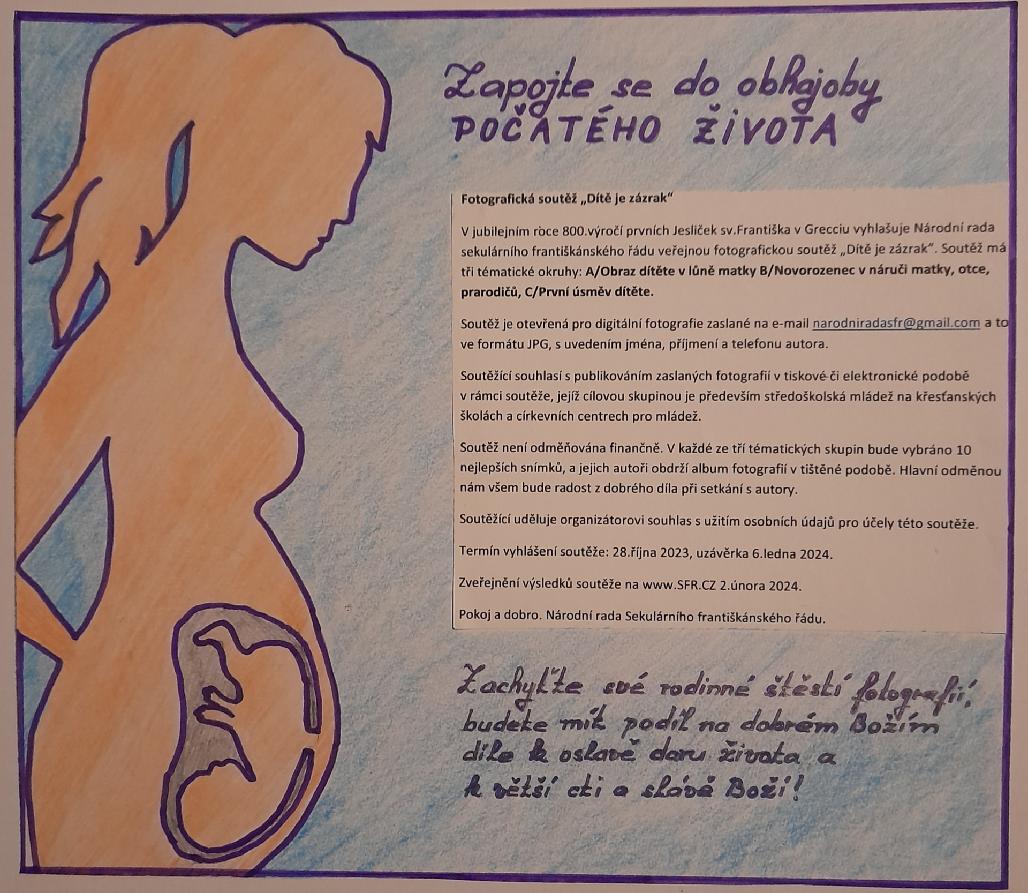 Zapojte se do obhajoby
POČATÉHO ŽIVOTA
Fotografická soutěž „Dítě je zázrak“
V jubilejním roce 800.výročí prvních Jesliček sv.Františka v Grecciu vyhlašuje Národní rada
sekulárního františkánského řádu veřejnou fotografickou soutěž „Dítě je zázrak“. Soutěž má
tři tématické okruhy: A/Obraz dítěte v lůně matky B/Novorozenec v náruči matky, otce,
prarodičů, C/První úsměv dítěte.
Soutěž je otevřená pro digitální fotografie zaslané na e-mail narodniradasfr@gmail.com a to
ve formátu JPG, s uvedením jména, příjmení a telefonu autora.
Soutěžící souhlasí s publikováním zaslaných fotografií v tiskové či elektronické podobě
v rámci soutěže, jejíž cílovou skupinou je především středoškolská mládež na křesťanských
školách a církevních centrech pro mládež.
Soutěž není odměňována finančně. V každé ze tří tématických skupin bude vybráno 10
nejlepších snímků, a jejich autoři obdrží album fotografií v tištěné podobě. Hlavní odměnou
nám všem bude radost z dobrého díla při setkání s autory.
Soutěžící uděluje organizátorovi souhlas s užitím osobních údajů pro účely této soutěže.
Termín vyhlášení soutěže: 28.října 2023, uzávěrka 6.ledna 2024.
Zveřejnění výsledků soutěže na www.SFR.CZ 2.února 2024.
Pokoj a dobro. Národní rada Sekulárního františkánského řádu.
Zachyťte své rodinné štěstí fotografií,
budete mít podíl na dobrém Božím
díle k oslavě daru života a
k větší cti a slávě Boží!